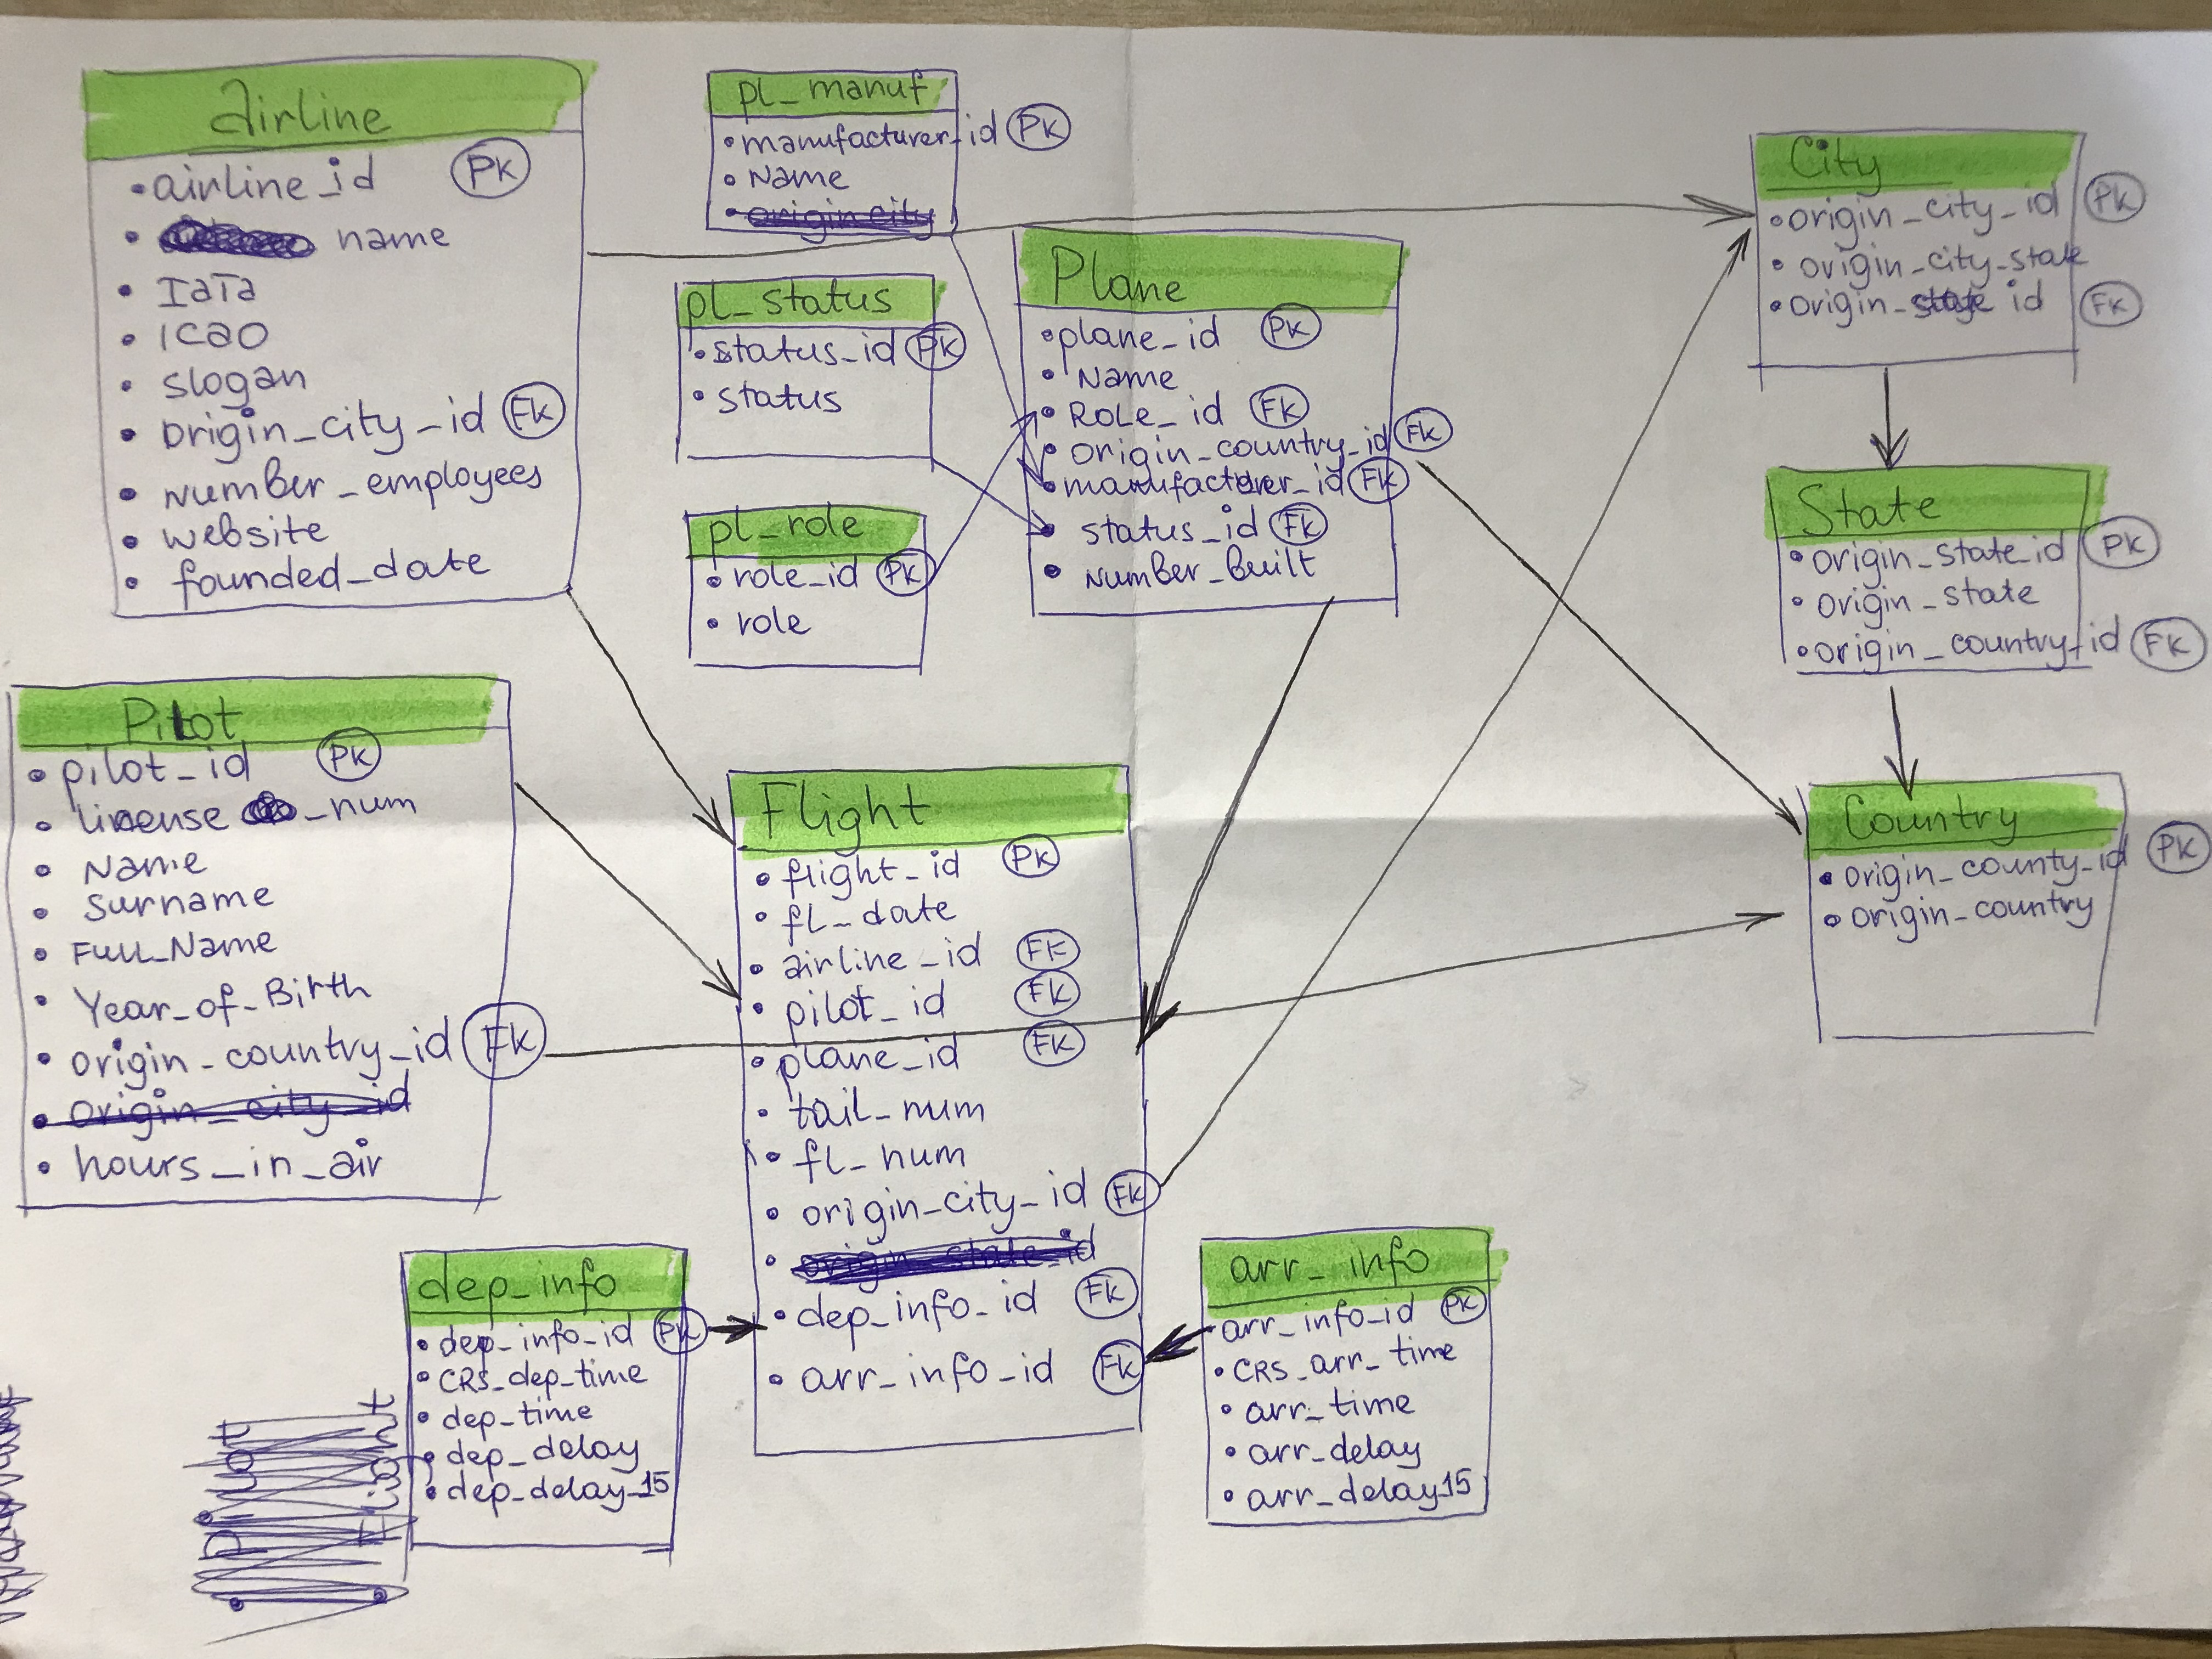 Airline
•airline_id PK
• name
• IATA
• ICAO
• slogan
• origin_city_id FK
• Number_employees
• website
• founded_date
pl_manuf
•manufacturer_id PK
• Name
• origin city
pl_status
•status_id PK
• status
pl_role
• role_id PK
• role
Plane
•plane_id PK
• Name
• Role_id FK
• origin_country_id FK
•manufacturer_id FK
• status_id FK
• Number_built
City
•origin_city_id PK
• origin_city_state
• origin_state id FK
State
•origin_state_id PK
• origin_state
•origin_country_id FK
Country
• origin_county_id PK
• origin_country
Pilot
• pilot_id PK
• license _num
• Name
• Surname
• Full_Name
• Year_of_Birth
• origin_country_id FK
• origin_city_id
• hours_in_air
Flight
• flight_id PK
• fl_date
• airline_id FK
• pilot_id FK
• plane_id FK
• tail_num
• fl_num
• origin_city_id FK
• origin_state_id
• dep_info_id FK
• arr_info_id FK
dep_info
• dep_info_id PK
• CRS_dep_time
• dep_time
• dep_delay
• dep_delay_15
arr_info
•arr_info_id PK
• CRS_arr_time
• arr_time
• arr_delay
• arr_delay15
Pilot
Flight